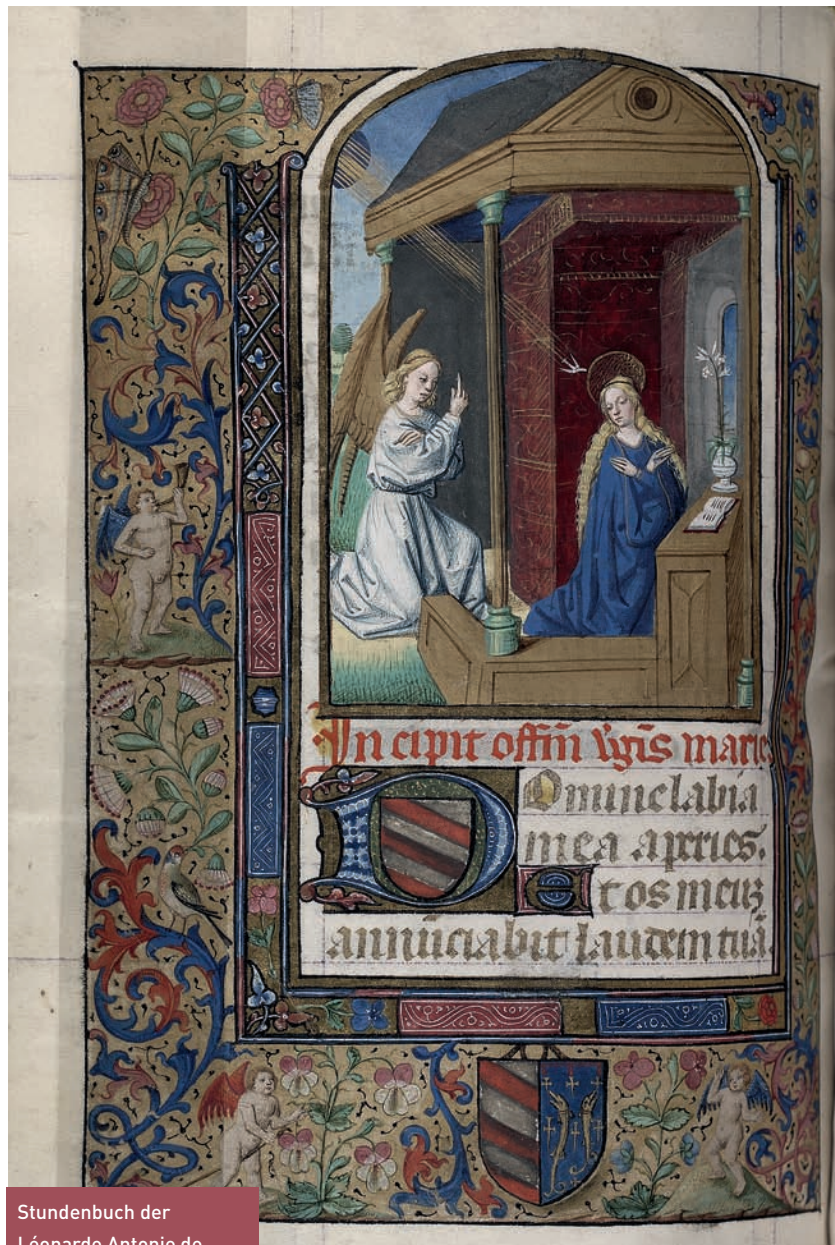 In cipit offm̄ v̓gis marie
Domine labia
mea aperies.
Et os meuʒ
annūciabit laudem tuā.
Stundenbuch der
Léonarde Antonie de